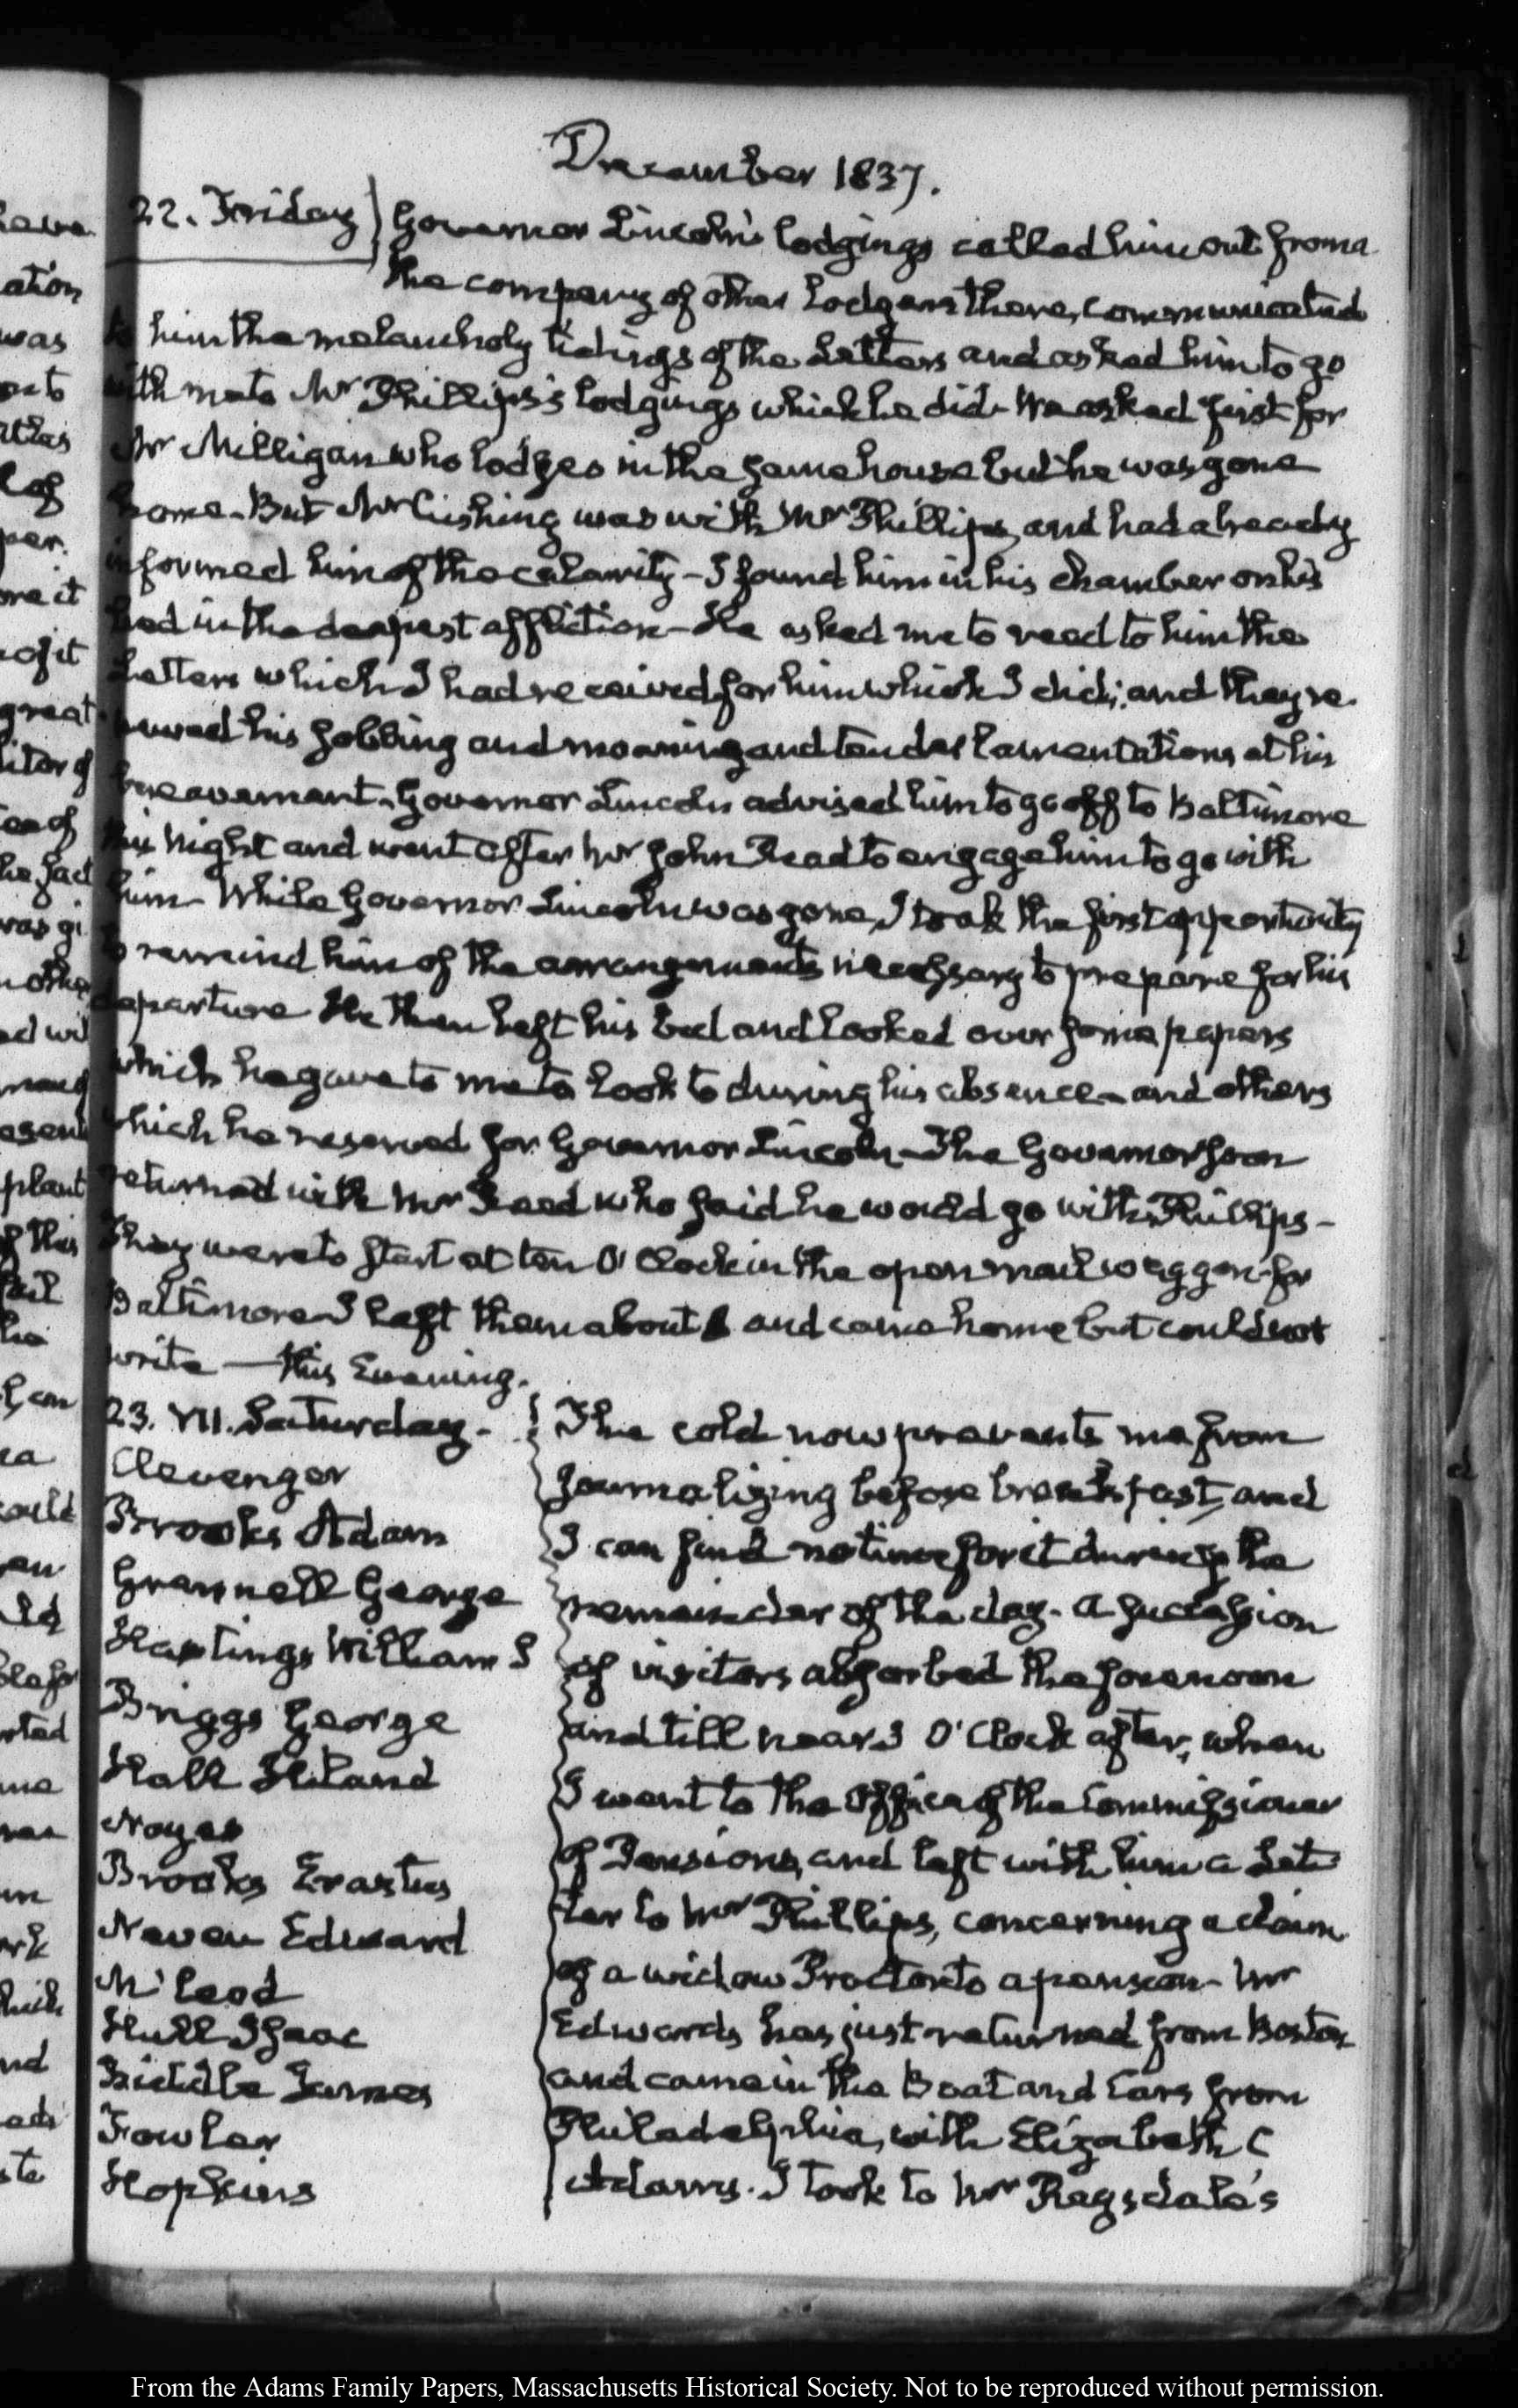 December 1837.
22. Friday} Governor Lincoln's lodgings called him out from a
the company of other Lodgers there, communicated
to him the melancholy tidings of the Letters and asked him to go
with me to Mr Phillips's lodgings which he did. We asked first for
Mr Milligan who lodges in the same house but he was gone
home. But Mr Cushing was with Mr Phillips, and had already
informed him of the calamity – I found him in his chamber on his
bed in the deepest affliction – He asked me to read to him the
Letters which I had received for him which I did; and they re-
newed his sobbing and moaning and tender lamentations at his
bereavement. Governor Lincoln advised him to go off to Baltimore
this night and went after Mr John Reed to engage him to go with
him – While Governor Lincoln was gone, I took the first opportunity
to remind him of the arrangements necessary to prepare for his
departure He then left his bed and looked over some papers
which he gave to me to look to during his absence – and others
which he reserved for Governor Lincoln – The Governor soon
returned with Mr Reed who said he would go with Phillips –
They were to start at ten O'Clock in the open mail waggon for
Baltimore I left them about 8 and came home but could not
write — this Evening.
23. VII. Saturday.
Clevenger
Brooks Adam
Grennell George
Hastings William S
Briggs George
Hall Hiland
Noyes
Brooks Erastus
Neven Edward
Mc'Leod
Hull Isaac
Biddle James
Fowler
Hopkins
The cold now prevents me from
journalizing before breakfast, and
I can find no time for it during the
remainder of the day. A succession
of visitors absorbed the forenoon
and till near 3 O'Clock after, when
I went to the Office of the Commissioner
of Pensions, and left with him a Let-
ter to Mr Phillips, concerning a claim
of a widow Proctor to a pension – Mr
Edwards has just returned from Boston
and came in the Boat and Cars from
Philadelphia, with Elizabeth C
Adams. I took to Mr Ragsdale's
From the Adams Family Papers, Massachusetts Historical Society. Not to be reproduced without permission.